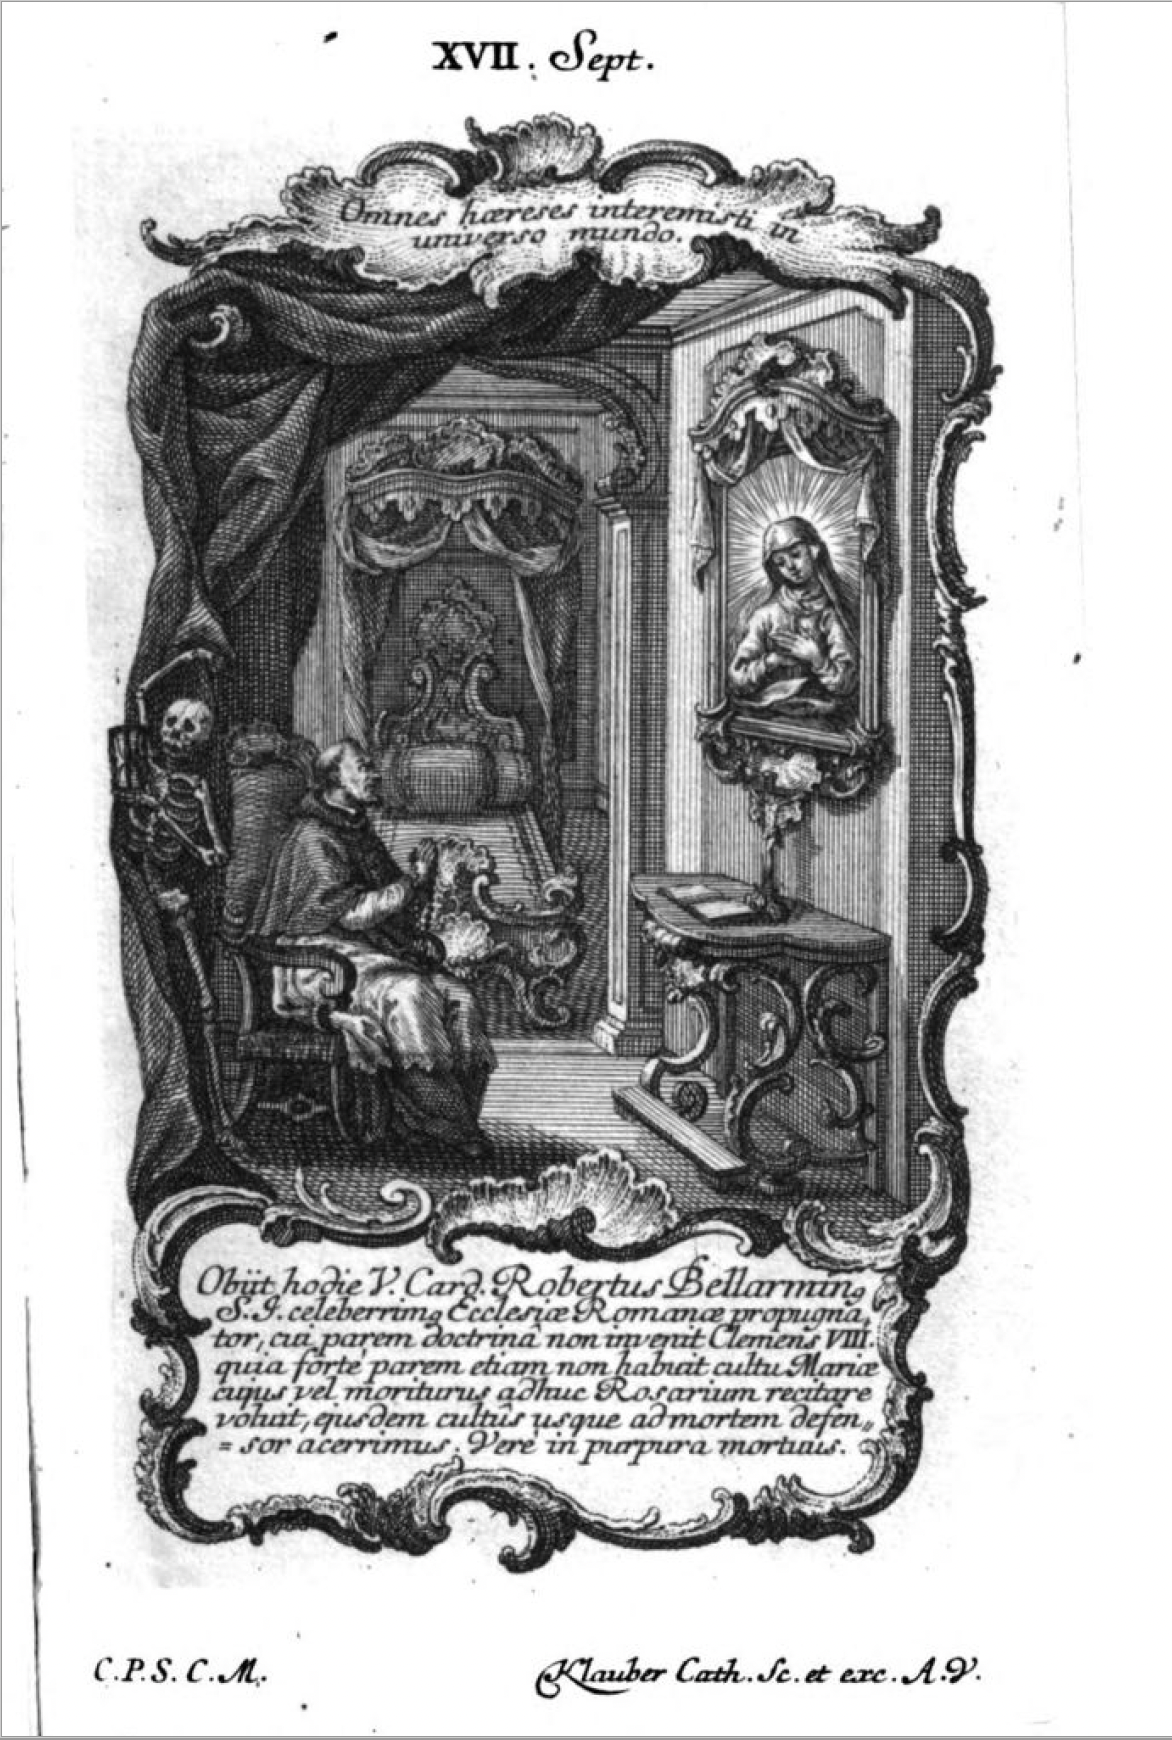 XVII. Sept.
Omnes hæreses interemisti in
universo mundo.
Obijt hodie V. Card. Robertus Bellarminꝰ
S. I. celeberrimꝰ Ecclesiæ Romanæ propugna,,
tor, cui parem doctrinâ non invenit Clemens VIII.
quia fortè parem etiam non habuit cultu Mariæ
cujus vel moriturus adhuc Rosarium recitare
voluit, ejusdem cultûs usque ad mortem defen„
= sor acerrimus. Verè in purpura mortuus.
C.P.S.C.M.
Klauber Cath. Sc. et exc. A.V.